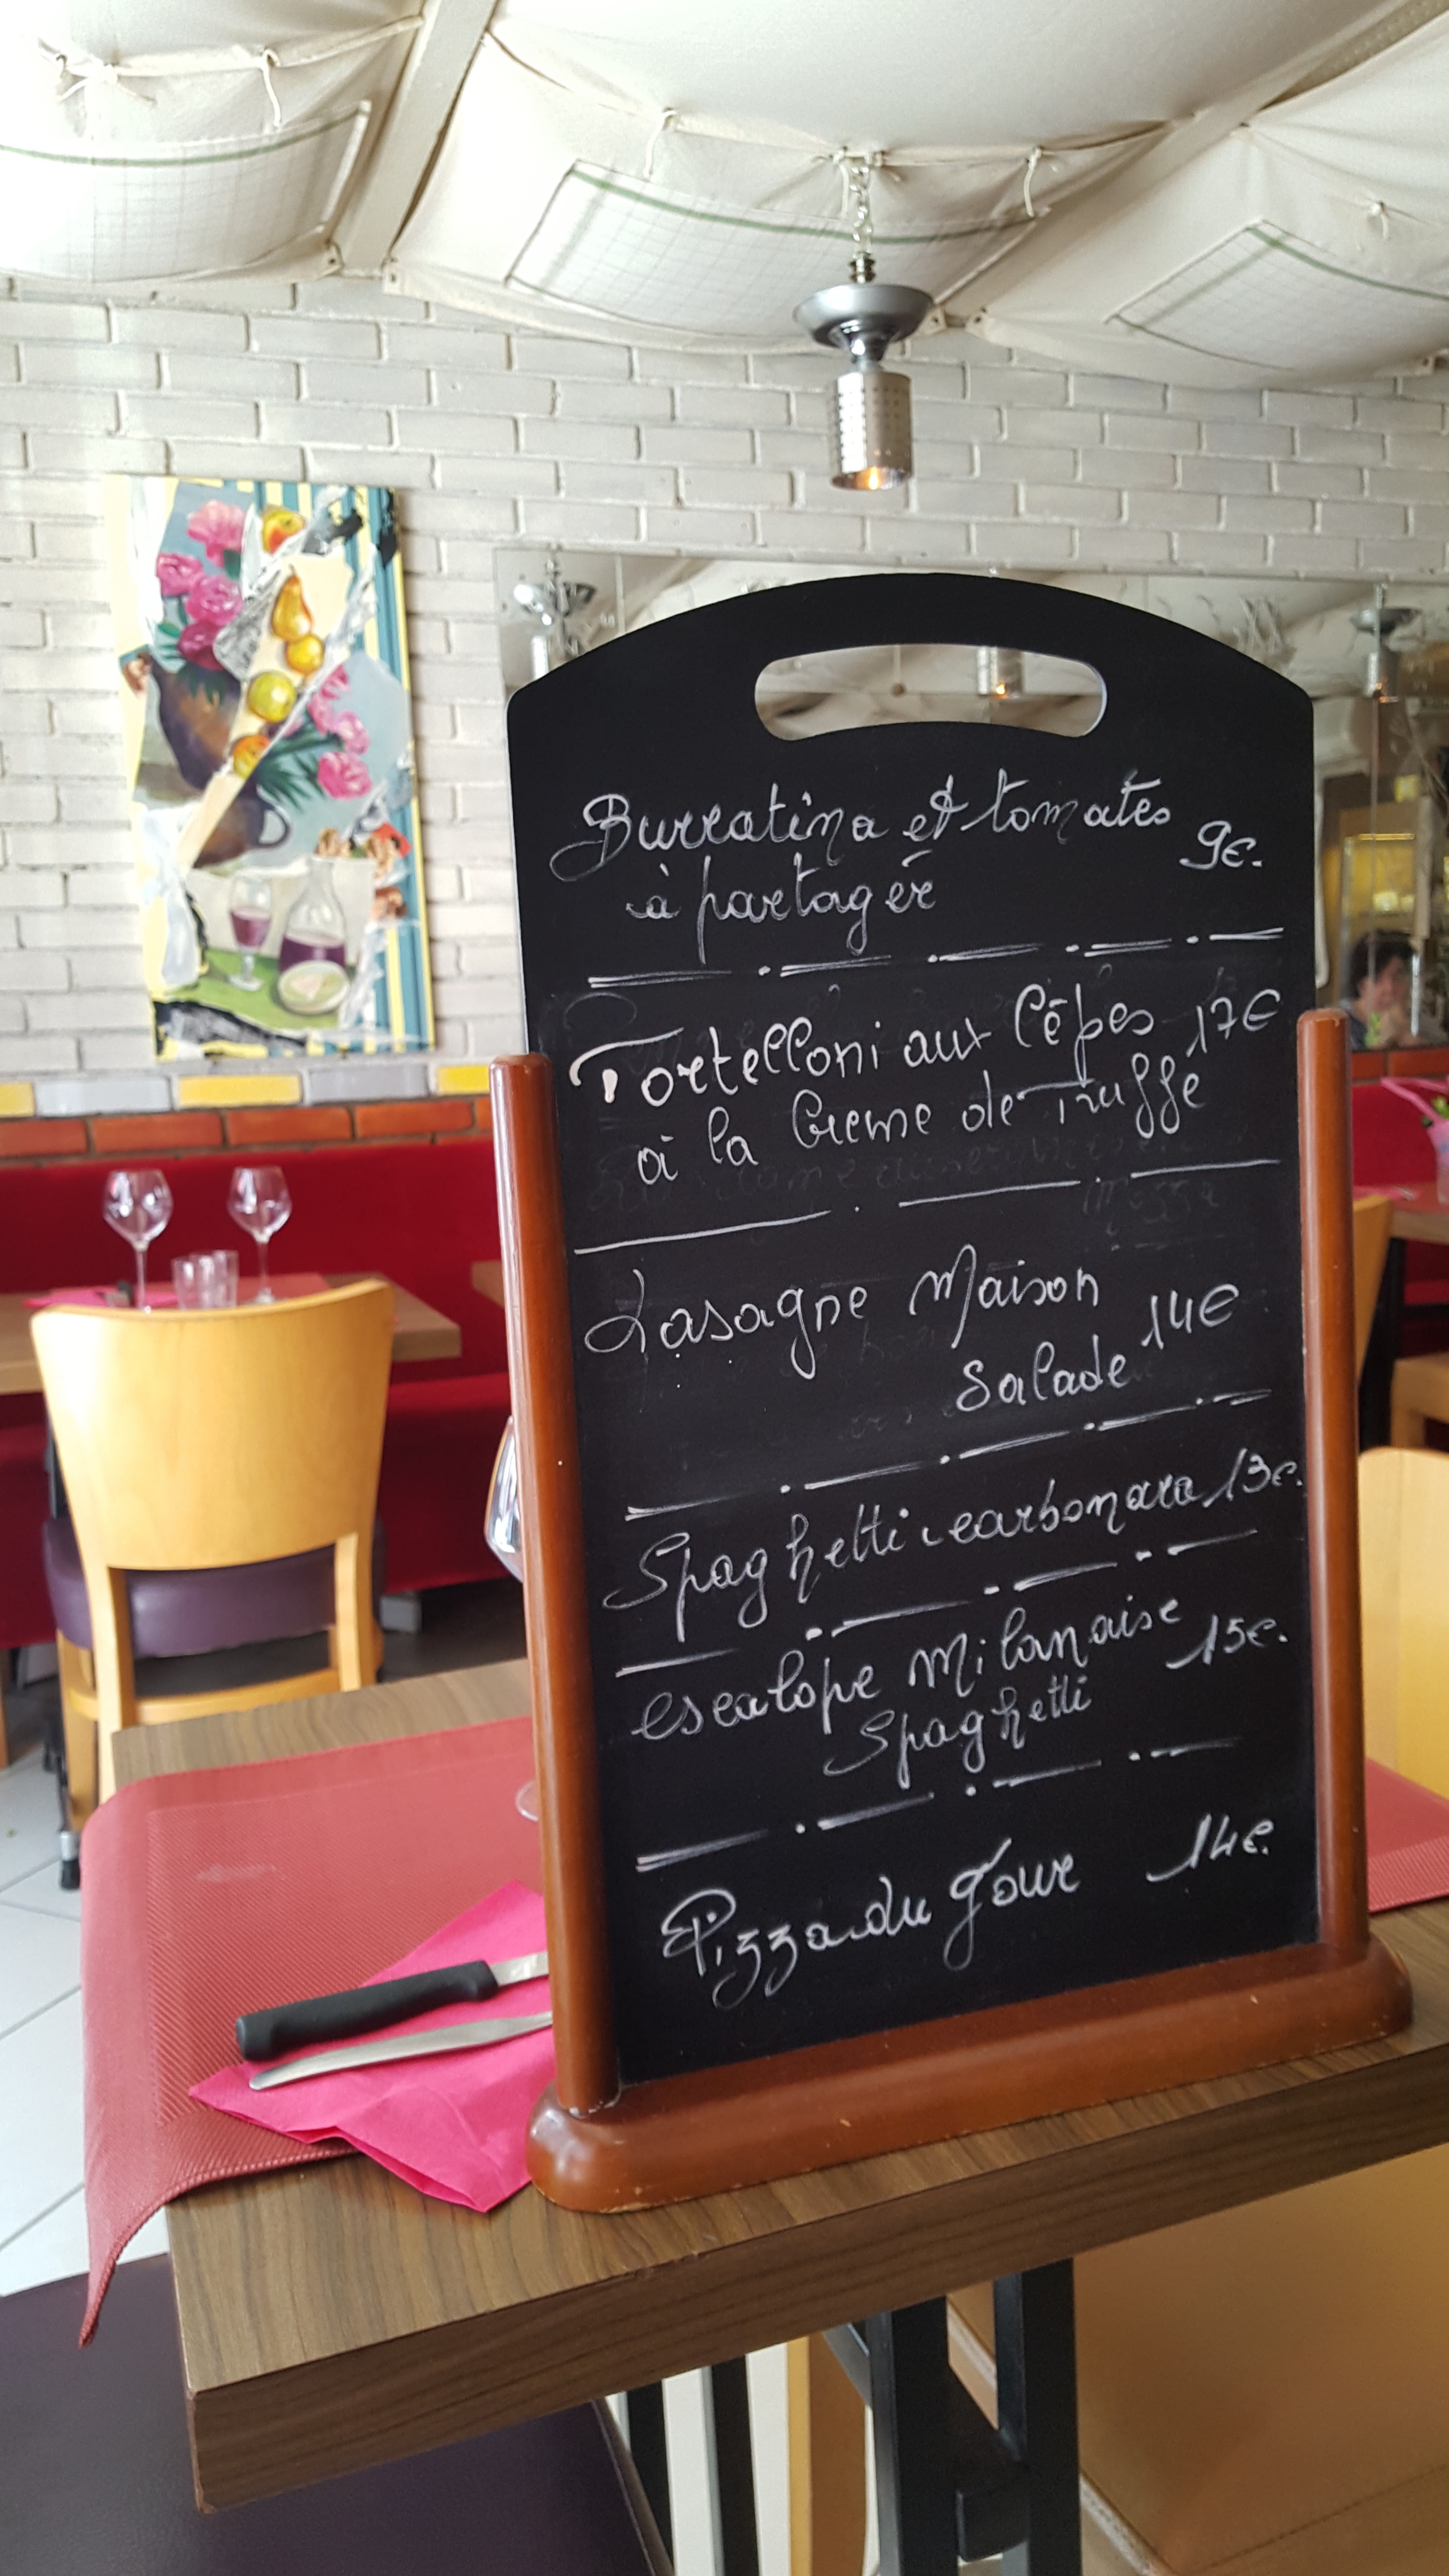 Burratina et tomates 9€.
à partager
Tortelloni aux Cêpes 17€
à la Creme de Truffe
Lasagne Maison 14€
Salade
Spaghetti carbonara 13€.
escalope Milanaise 15€.
Spaghetti
Pizza du Jour 14€.